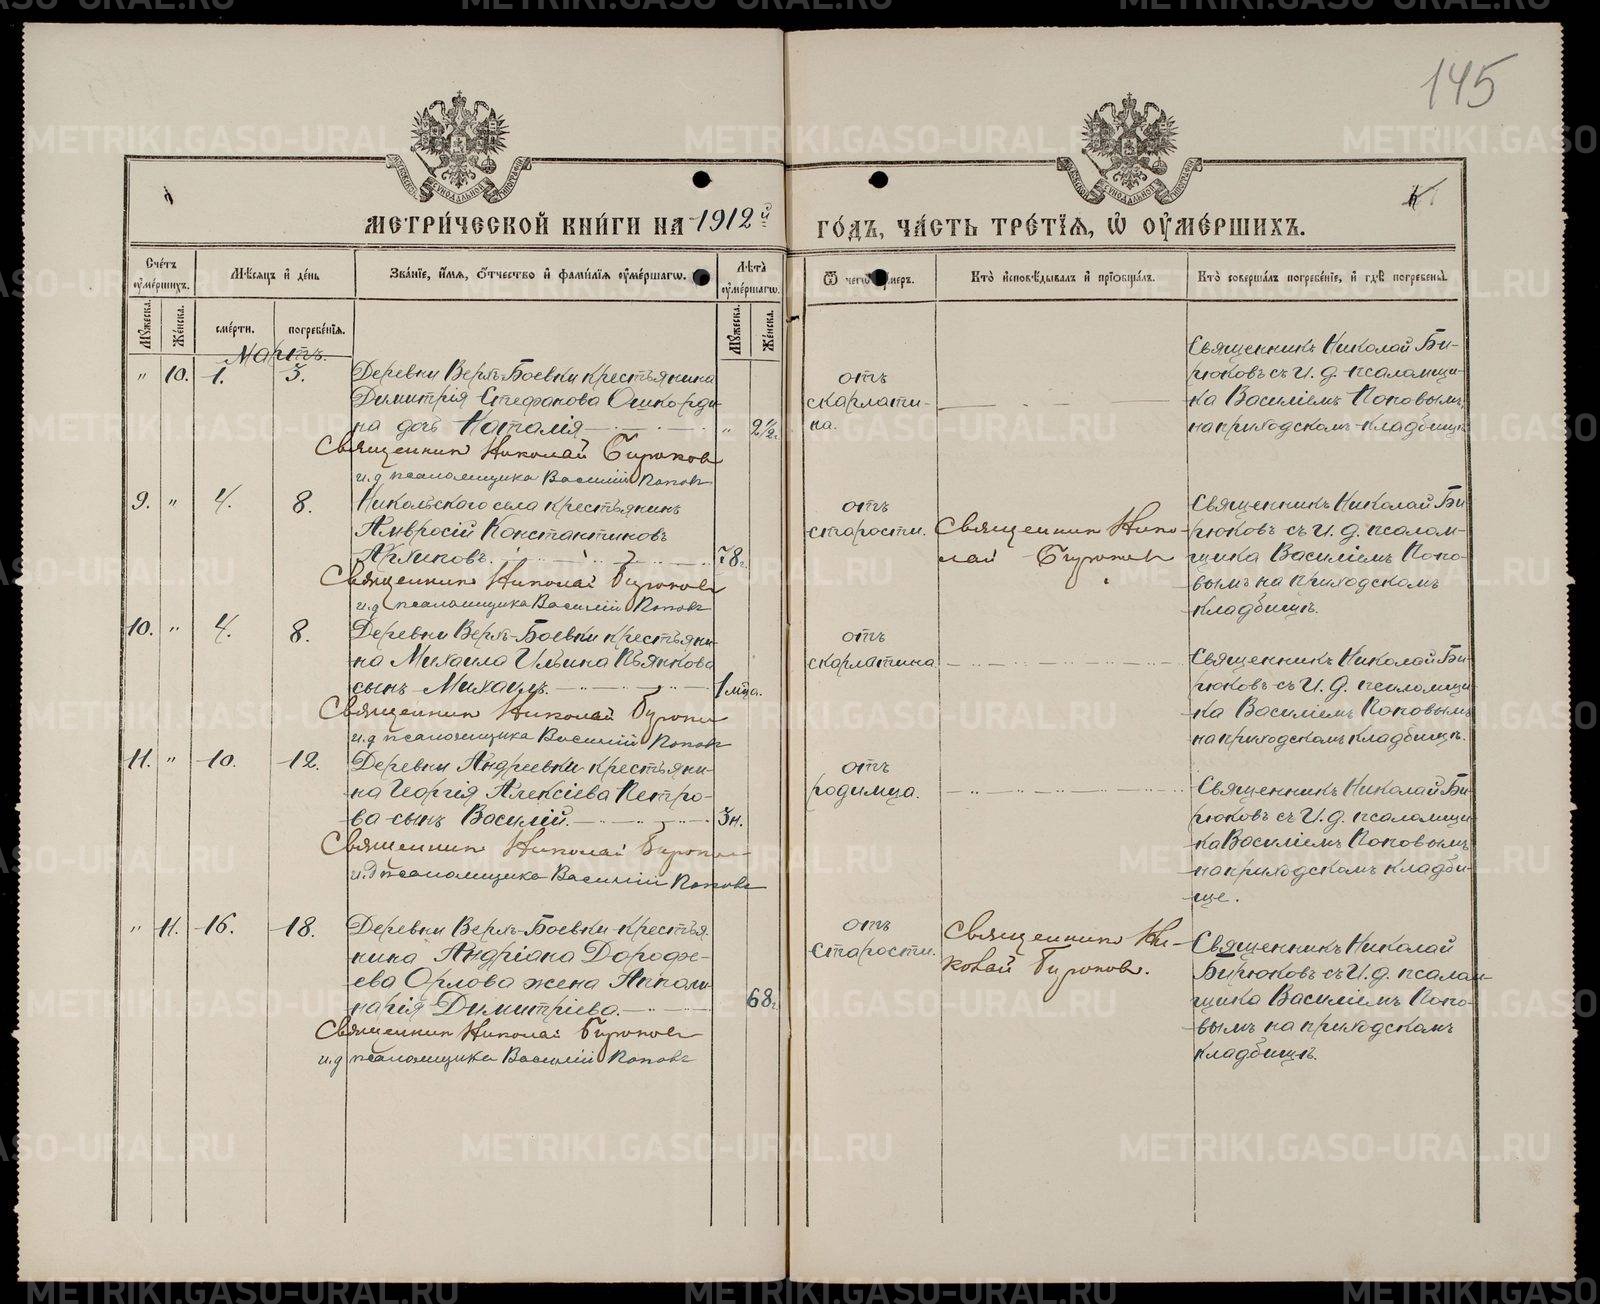 145
МЕТРИ́ЧЕСКОЙ КНИ́ГИ НА 1912й ГО́ДЪ, ЧА́СТЬ ТРЕ́ТЇѦ, Ѡ҆ ОУ҆МЕ́РШИХЪ.
Сче́тъ оу҆ме́ршихъ.
Мѣ́сяцъ и҆ де́нь
Зва́нїе, и҆́мѧ, ѻ҆́тчество и҆ фами́лїѧ оу҆ме́ршагѡ.
Лѣ́та оу҆ме́ршагѡ.
Ѿ чегѡ̀ оу҆́меръ.
Кто̀ и҆сповѣ́дывалъ и҆ прїѡбща́лъ.
Кто̀ соверша́лъ погребе́нїе, и҆ гдѣ̀ погребены̀.
Мꙋ́жеска.
Же́нска.
сме́рти.
погребе́нїѧ.
Мꙋ́жеска.
Же́нска.
Мартъ.
" 10. 1. 3.
Деревни Верхъ-Боевки крестьянина
Димитрія Стефанова Ошкорди-
на дочь Наталія " 2½ г.
Священник Николай Бирюков
и.д псаломщика Василій Поповъ
отъ
скарлати-
на.
Священникъ Николай Би-
рюковъ съ И. д. псаломщи-
ка Василіемъ Поповымъ
на приходскомъ кладбищѣ
9. " 4. 8.
Никольскаго села крестьянинъ
Амвросій Константиновъ
Архиповъ. 78 г.
Священникъ Николай Бирюковъ
и.д псаломщика Василій Поповъ
отъ
старости.
Священник Нико-
лай Бирюков
Священникъ Николай Би-
рюковъ съ И. д. псалом-
щика Василіемъ Попо-
вымъ на приходскомъ
кладбищѣ.
10. " 4. 8.
Деревни Верхъ-Боевки крестьяни-
на Михаила Ильина Пьянкова
сынъ Михаилъ. 1 мца.
Священник Николай Бирюков
и.д псаломщика Василій Поповъ
отъ
скарлатина
Священникъ Николай Би-
рюковъ съ И. д. псаломщи-
ка Василіемъ Поповымъ
на приходскомъ кладбищѣ.
11. " 10. 12.
Деревни Андреевки крестьяни-
на Георгія Алексіева Петро-
ва сынъ Василій. 3 н.
Священник Николай Бирюков
и.д псаломщика Василій Поповъ
отъ
родимца.
Священникъ Николай Би-
рюковъ съ И. д. псаломщи-
ка Василіемъ Поповымъ
на приходскомъ кладби-
ще.
" 11. 16. 18.
Деревни Верхъ-Боевки крестья-
нина Андріана Дорофе-
ева Орлова жена Аппали-
нарія Димитріева. 68 г.
Священник Николай Бирюков
и.д псаломщика Василій Поповъ
отъ
старости.
Священникъ Ни-
колай Бирюковъ.
Священникъ Николай
Бирюковъ съ И. д. псалом-
щика Василіемъ Попо-
вымъ на приходскомъ
кладбищѣ.
METRIKI.GASO-URAL.RU